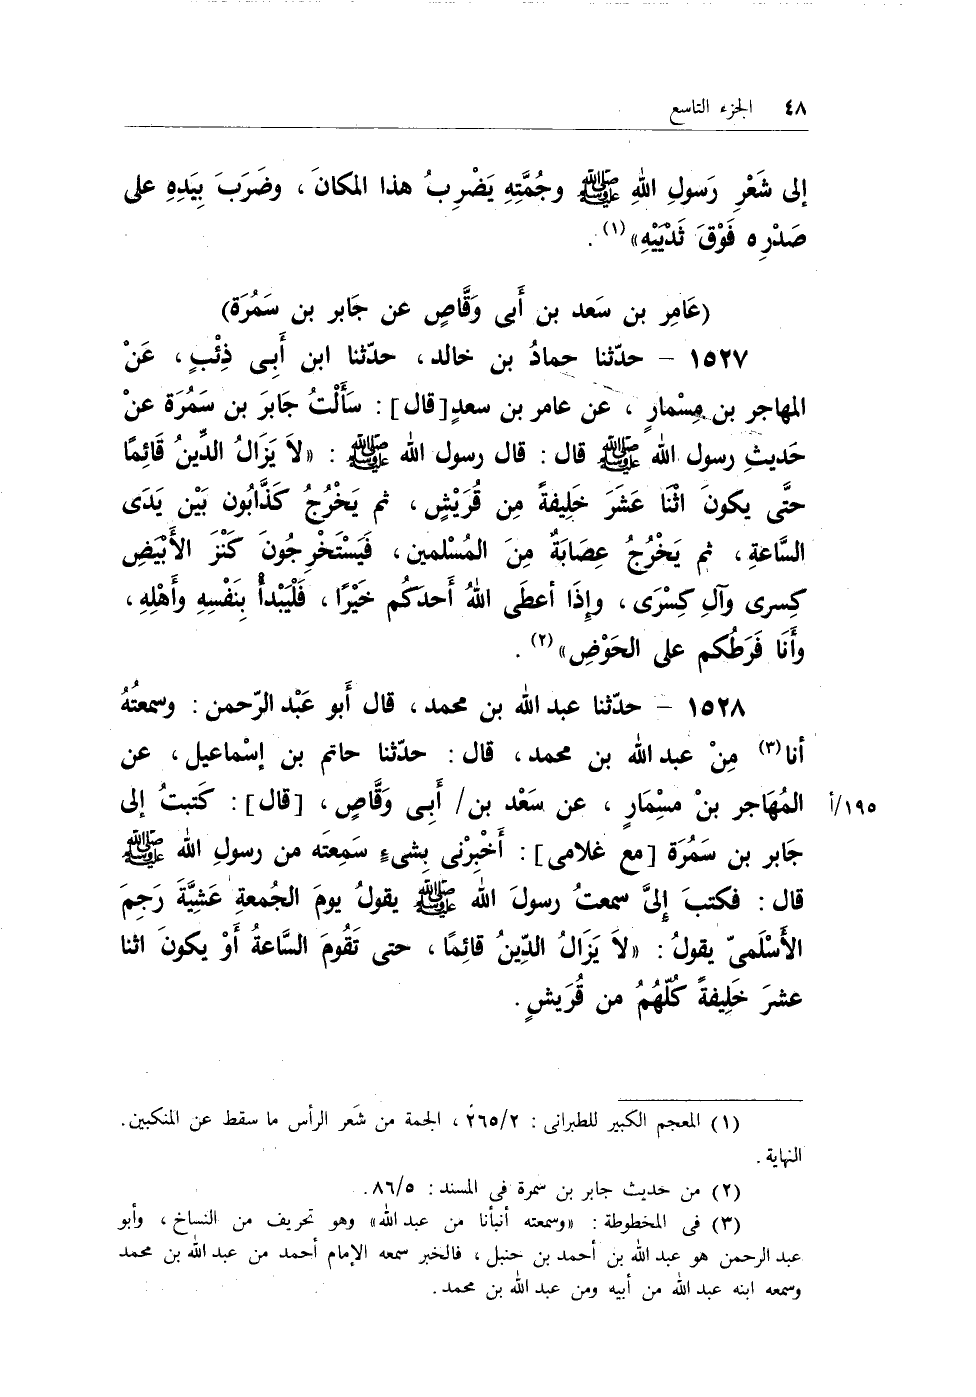 ٤٨ الجزء التاسع
إلى شَعْرِ رَسولِ اللهِ ﷺ وجُمَّتِهِ يَضْرِبُ هذا المكانَ ، وضَرَبَ بِيَدِهِ على
صَدْرِه فَوْقَ ثَدْيَيْهِ» (١) .
(عَامِر بن سَعد بن أَبى وَقَّاصٍ عن جَابر بن سَمُرَة)
١٥٢٧ – حدّثنا حمادُ بن خالد ، حدّثنا ابن أَبِى ذِئْبٍ ، عَنْ
المهاجر بن مِسْمارٍ ، عن عامر بن سعدٍ [قال] : سَأَلْتُ جَابَر بن سَمُرَة عنْ
حَديثِ رسول الله ﷺ قال : قال رسول الله ﷺ : «لاَ يَزَالُ الدِّينُ قَائِمًا
حتَّى يكونَ اثْنَا عَشَرَ خَلِيفةً مِن قُرَيْشٍ ، ثم يَخْرُجُ كَذَّابُون بَيْن يَدَى
السَّاعةِ ، ثم يَخْرُجُ عِصَابَةٌ مِنَ المُسْلمين ، فَيَسْتَخْرِجُونَ كَنْزَ الأَبْيَضِ
كِسرى وآلِ كِسْرَى ، وإِذَا أعطَى اللهُ أَحدَكُم خَيْرًا ، فَلْيَبْدأْ بِنَفْسِهِ وأَهْلِهِ ،
وأَنَا فَرَطُكم على الحَوْضِ» (٢) .
١٥٢٨ – حدّثنا عبد الله بن محمد ، قال أَبو عَبْد الرّحمن : وسمعتُهُ
أنا (٣) مِنْ عبد الله بن محمد ، قال : حدّثنا حاتم بن إسْماعيل ، عن
المُهَاجر بنْ مسْمَارٍ ، عن سَعْد بن / أَبِى وَقَّاصٍ ، [قال] : كَتبتُ إلى ١٩٥/أ
جَابر بن سَمُرَة [مع غلامى] : أَخْبِرْنى بِشىءٍ سَمِعتَه من رسولِ الله ﷺ
قال : فكتبَ إِلىَّ سمعتُ رسولَ الله ﷺ يقولُ يومَ الجُمعةِ عَشِيَّةَ رَجِمَ
الأَسْلَمىّ يقولُ : «لاَ يَزَالُ الدِّينُ قائِمًا ، حتى تَقُومَ السَّاعةُ أَوْ يكونَ اثنا
عشرَ خَلِيفةً كُلّهُمُ من قُرَيشٍ .
(١) المعجم الكبير للطبرانى : ٢٦٥/٢ ، الجمة من شَعر الرأس ما سقط عن المنكبين .
النهاية .
(٢) من حديث جابر بن سمرة فى المسند : ٨٦/٥ .
(٣) فى المخطوطة : «وسمعته أنبأنا من عبد الله» وهو تحريف من النساخ ، وأبو
عبد الرحمن هو عبد الله بن أحمد بن حنبل ، فالخبر سمعه الإمام أحمد من عبد الله بن محمد
وسمعه ابنه عبد الله من أبيه ومن عبد الله بن محمد .